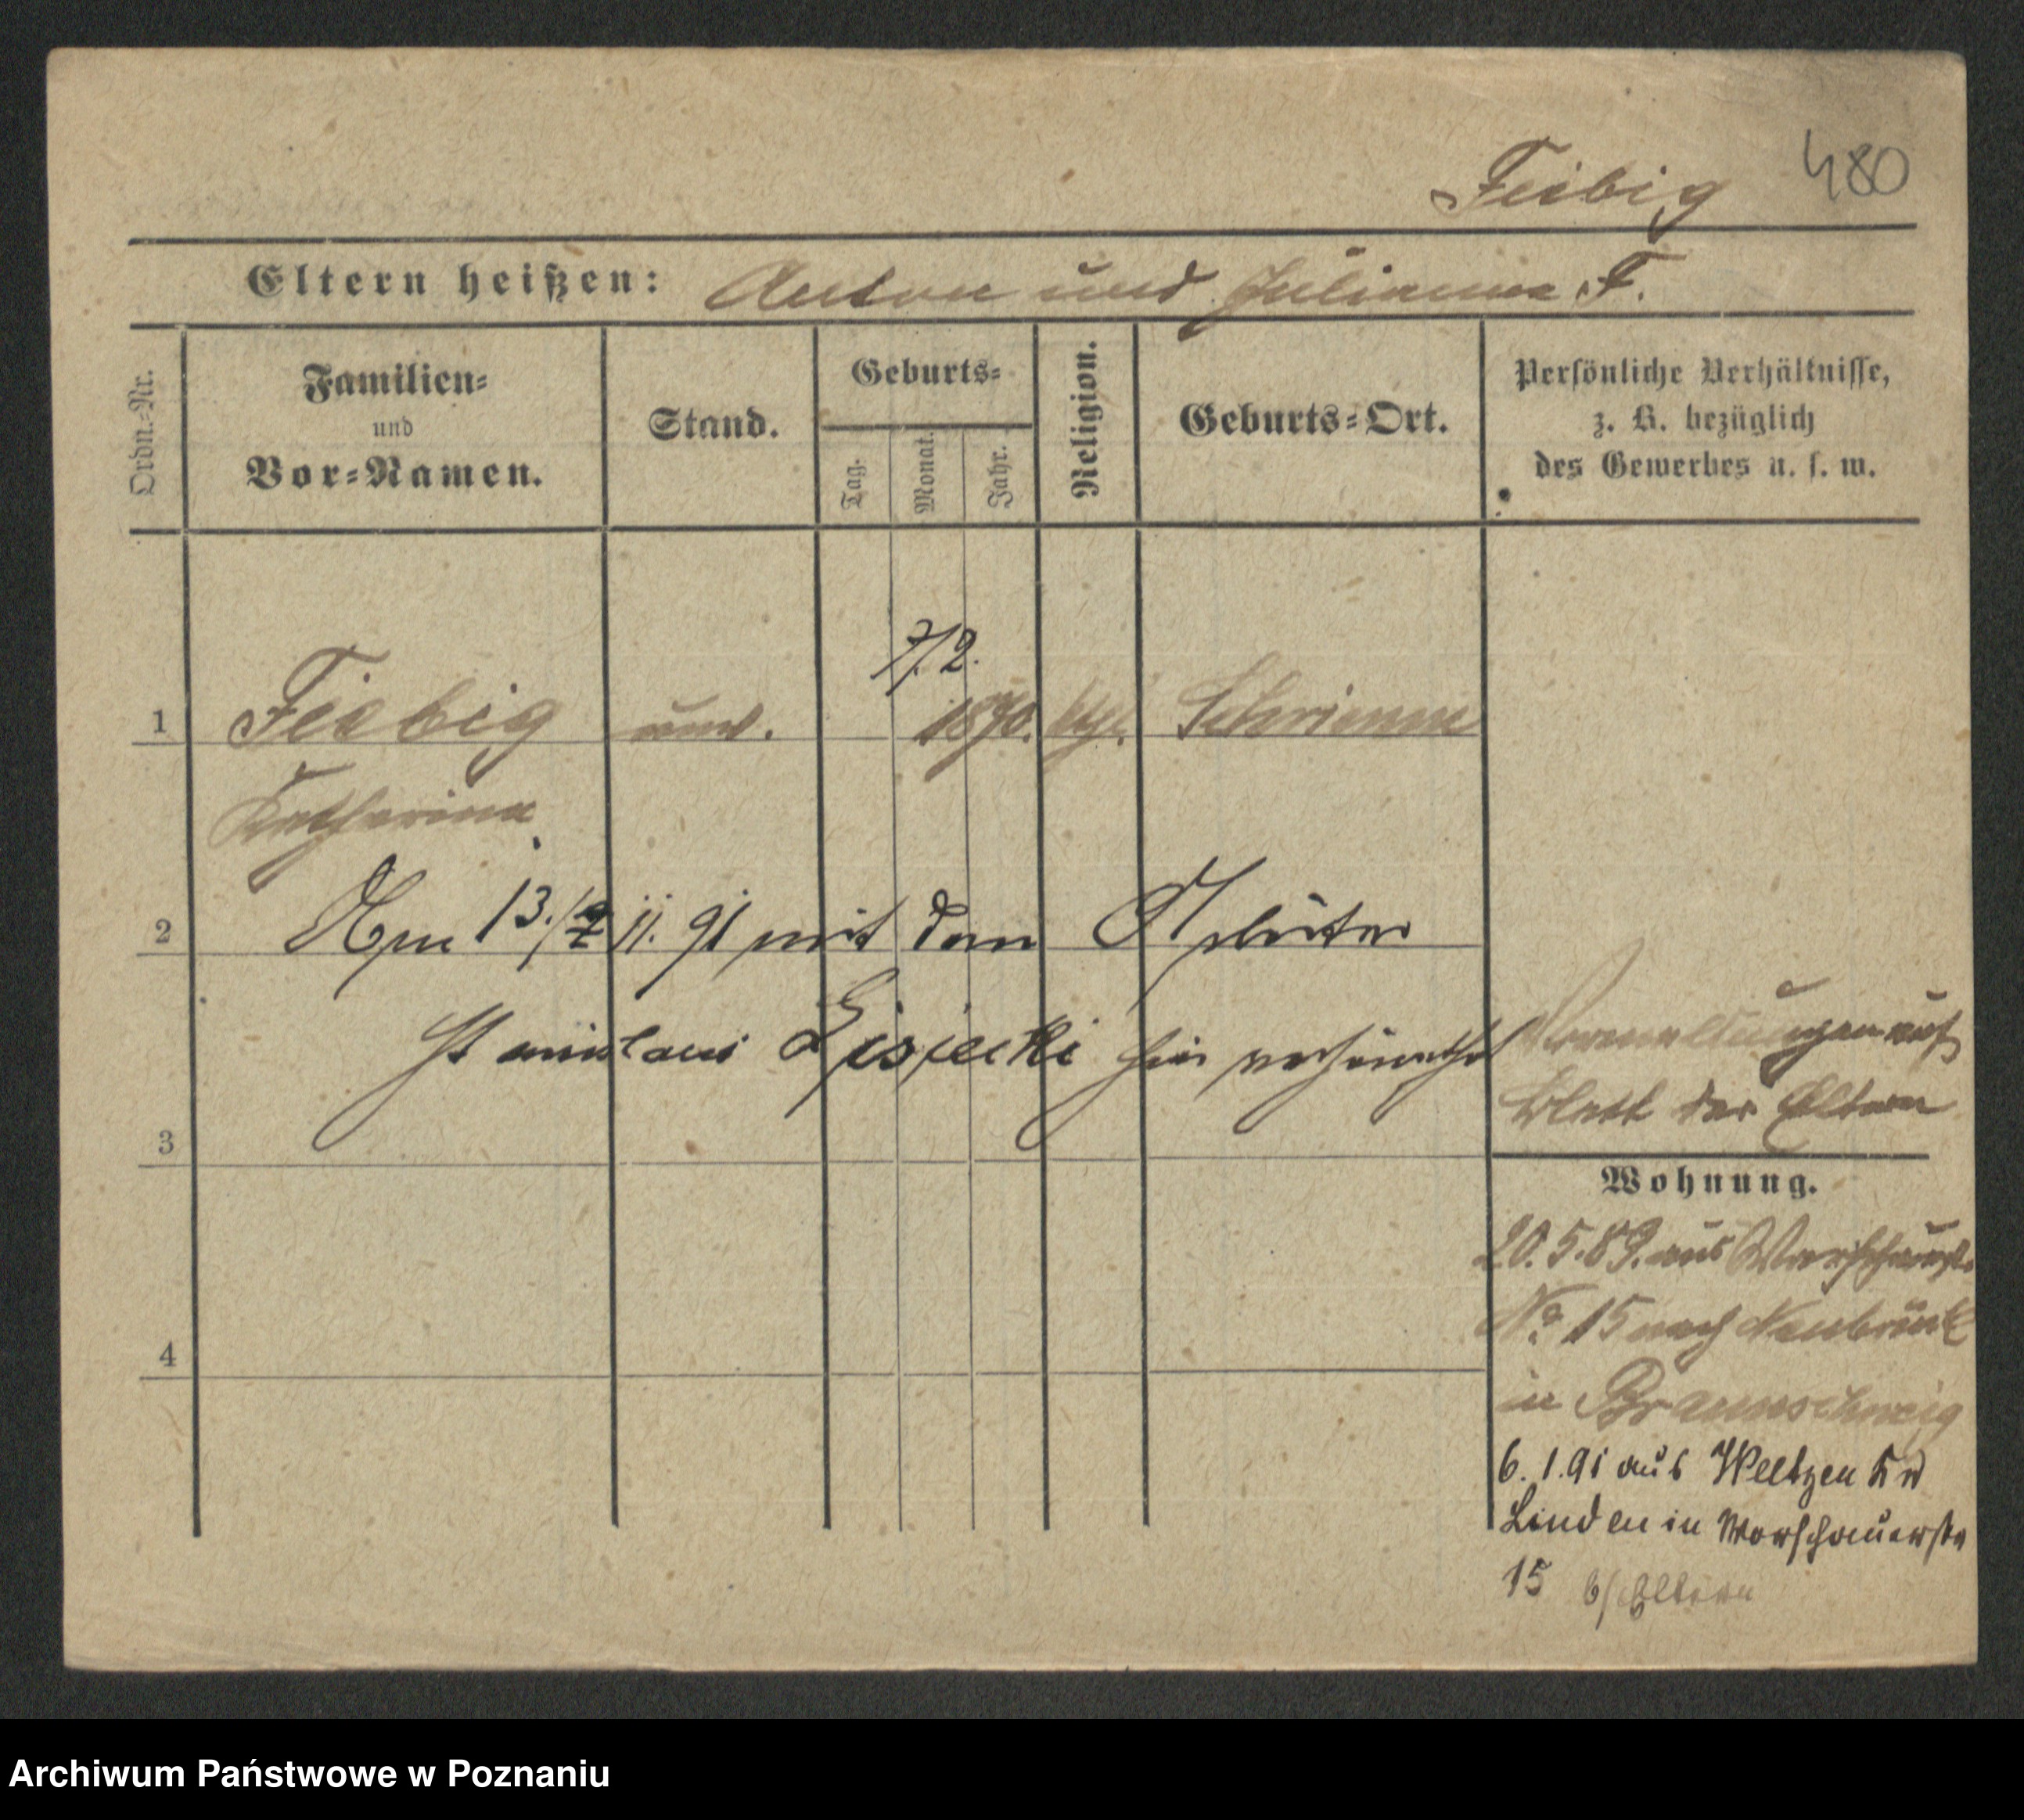 480
Feibig
Eltern heißen: Anton und Julianna F.
Ordn.-Nr.
Familien-
und
Vor-Namen.
Stand.
Geburts-
Tag.
Monat.
Jahr.
Religion.
Geburts-Ort.
Persönliche Verhältnisse,
z. B. bezüglich
des Gewerbes u. s. w.
7/2.
1 Feibig unv. 1870. kth. Schrimm
Katharina
2 Am 13./ 11. 91 mit dem Arbeiter
Stanislaus Lisiecki hier verheirathet
3
4
Vermeldungen auf
Blatt der Eltern
Wohnung.
20.5.89. aus Warschauerst.
No 15 nach Neubrück
in Braunschweig
6. 1. 91 aus Weltzen
Linden in Warschauerstr
15 b/Eltern
Archiwum Państwowe w Poznaniu